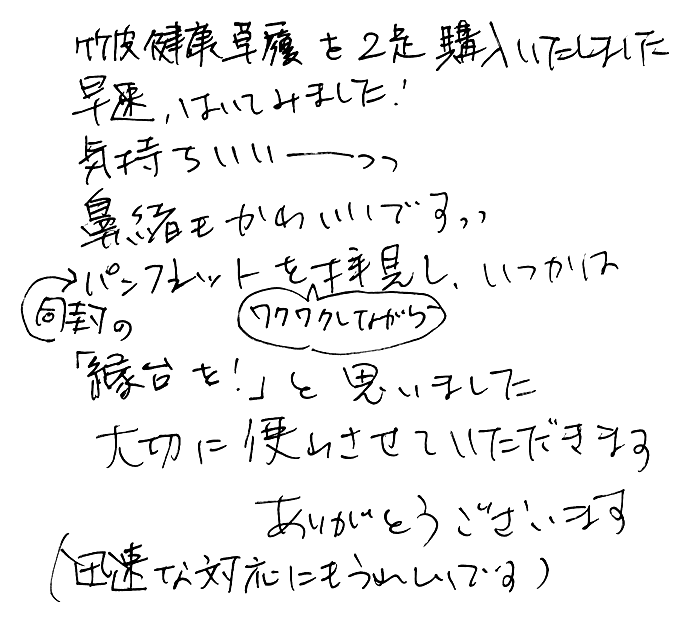 竹皮健康草履を2足購入いたしました
早速、はいてみました!
気持ちいいーっっ
鼻緒もかわいいですっっ
パンフレットを拝見し、いつかは
同封の
ワクワクしながら
「縁台を!」と思いました
大切に使わさせていただきます
ありがとうございます
(迅速な対応にもうれしいです)